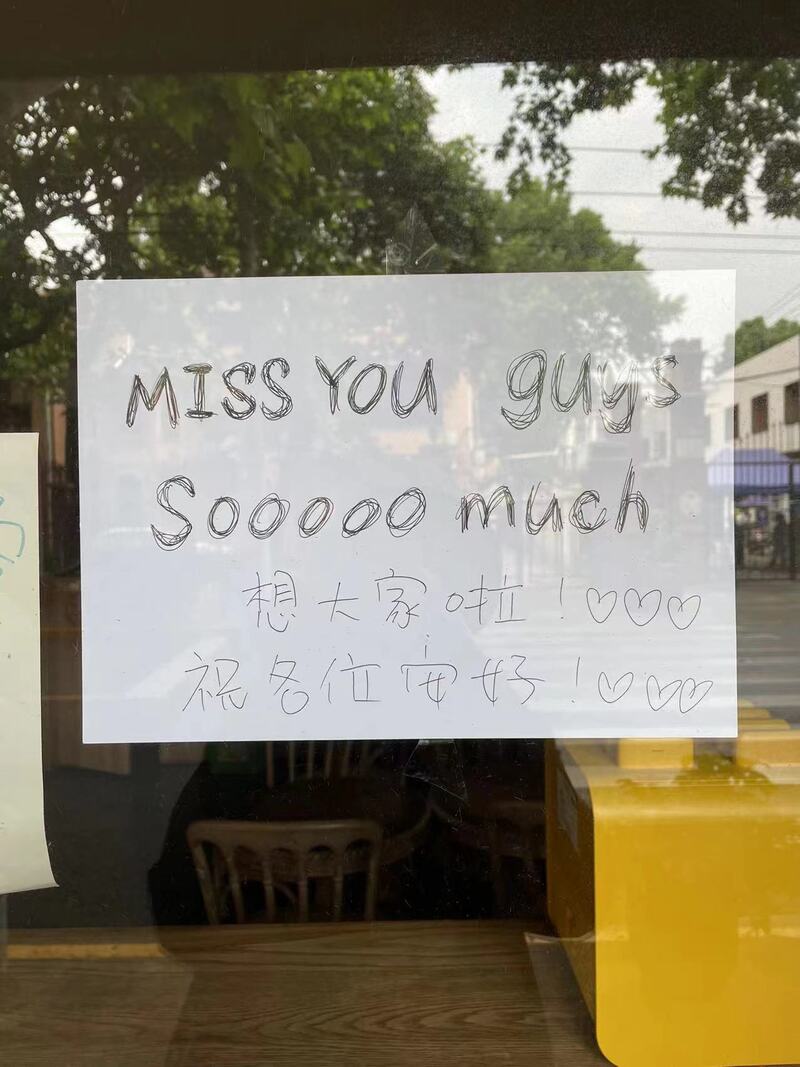 MISS YOU guys
Sooooo much
想大家啦！♡♡♡
祝各位安好！♡♡♡